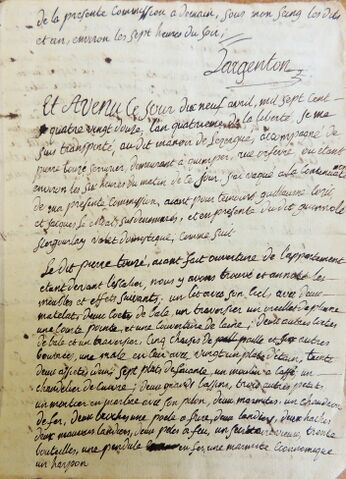 de la presente Commission a demain, sous mon seing les dits
et an, environ les sept heures du soir;
Dargenton
Et Avenu le jour dix neuf avril, mil sept cent
quatre vingt douze, l'an quatrieme de la liberté, je me
suis transporté, au dit manoir de accompagné de
pierre touzé serrurier, demeurant à quimper, rue orfevre, ou etant
environ les six heures du matin de ce jour, j'ai vaqué a la continuation
de ma presente Commission, ayant pour temoins guillaume
et jacques Le et en presence du dit
valet domestique, comme suit
Le dit pierre touzé, ayant fait ouverture de l'appartement
etant devant l'escalier, nous y avons trouvé et annoté les
meubles et effets suivants, un lit avec son Ciel avec deux
matelats, deux Couetes de bale, un traversier un oreiller de plume
une Conte pointe, et une Couverture de laine; deux autres Couetes
de bale et un traversier, Cinq chaises de paille et six autres
bourrées, une male en cuir avec vingt un plats d'etain, trente
deux assietes idem; sept plats de faiance, un moulin à Café, un
chandelier de Cuivre; deux grands bassins, trois autres petits
un mortier en marbre avec son pilon, deux marmites, un chaudron
de fer, deux broches une poële a frire, deux landiers, deux haches
deux mauvais landiers, deux peles a feu, un trente
bouteilles, une pendule en fer une marmite Economique
un harpon